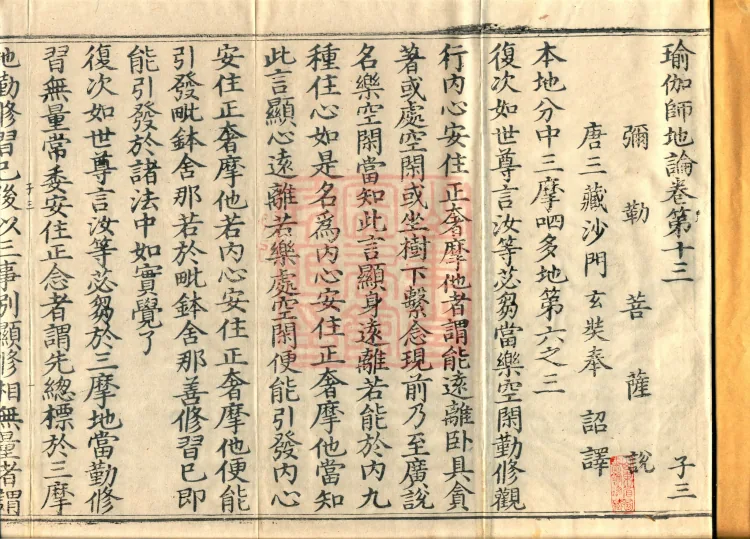 瑜伽師地論卷第十三 子三
彌勒菩薩說
唐三藏沙門玄奘奉 詔譯
本地分中三摩呬多地第六之三
復次如世尊言汝等苾芻當樂空閑勤修觀
行內心安住正奢摩他者謂能遠離卧具貪
著或處空閑或坐樹下繫念現前乃至廣說
名樂空閑當知此言顯身遠離若能於內九
種住心如是名爲內心安住正奢摩他當知
此言顯心遠離若樂處空閑便能引發內心
安住正奢摩他若內心安住正奢摩他便能
引發毗鉢舍那若於毗鉢舍那善修習已即
能引發於諸法中如實覺了
復次如世尊言汝等苾芻於三摩地當勤修
習無量常委安住正念者謂先總標於三摩
子三
地勤修習已後以三事別顯修相無量者謂